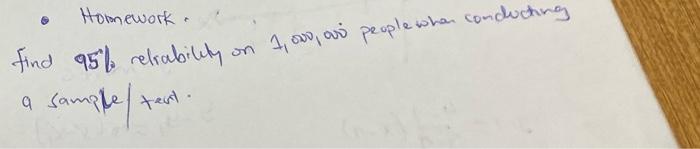 • Homework.
find 95% reliability on 1,000,000 people when conducting
a sample/test.